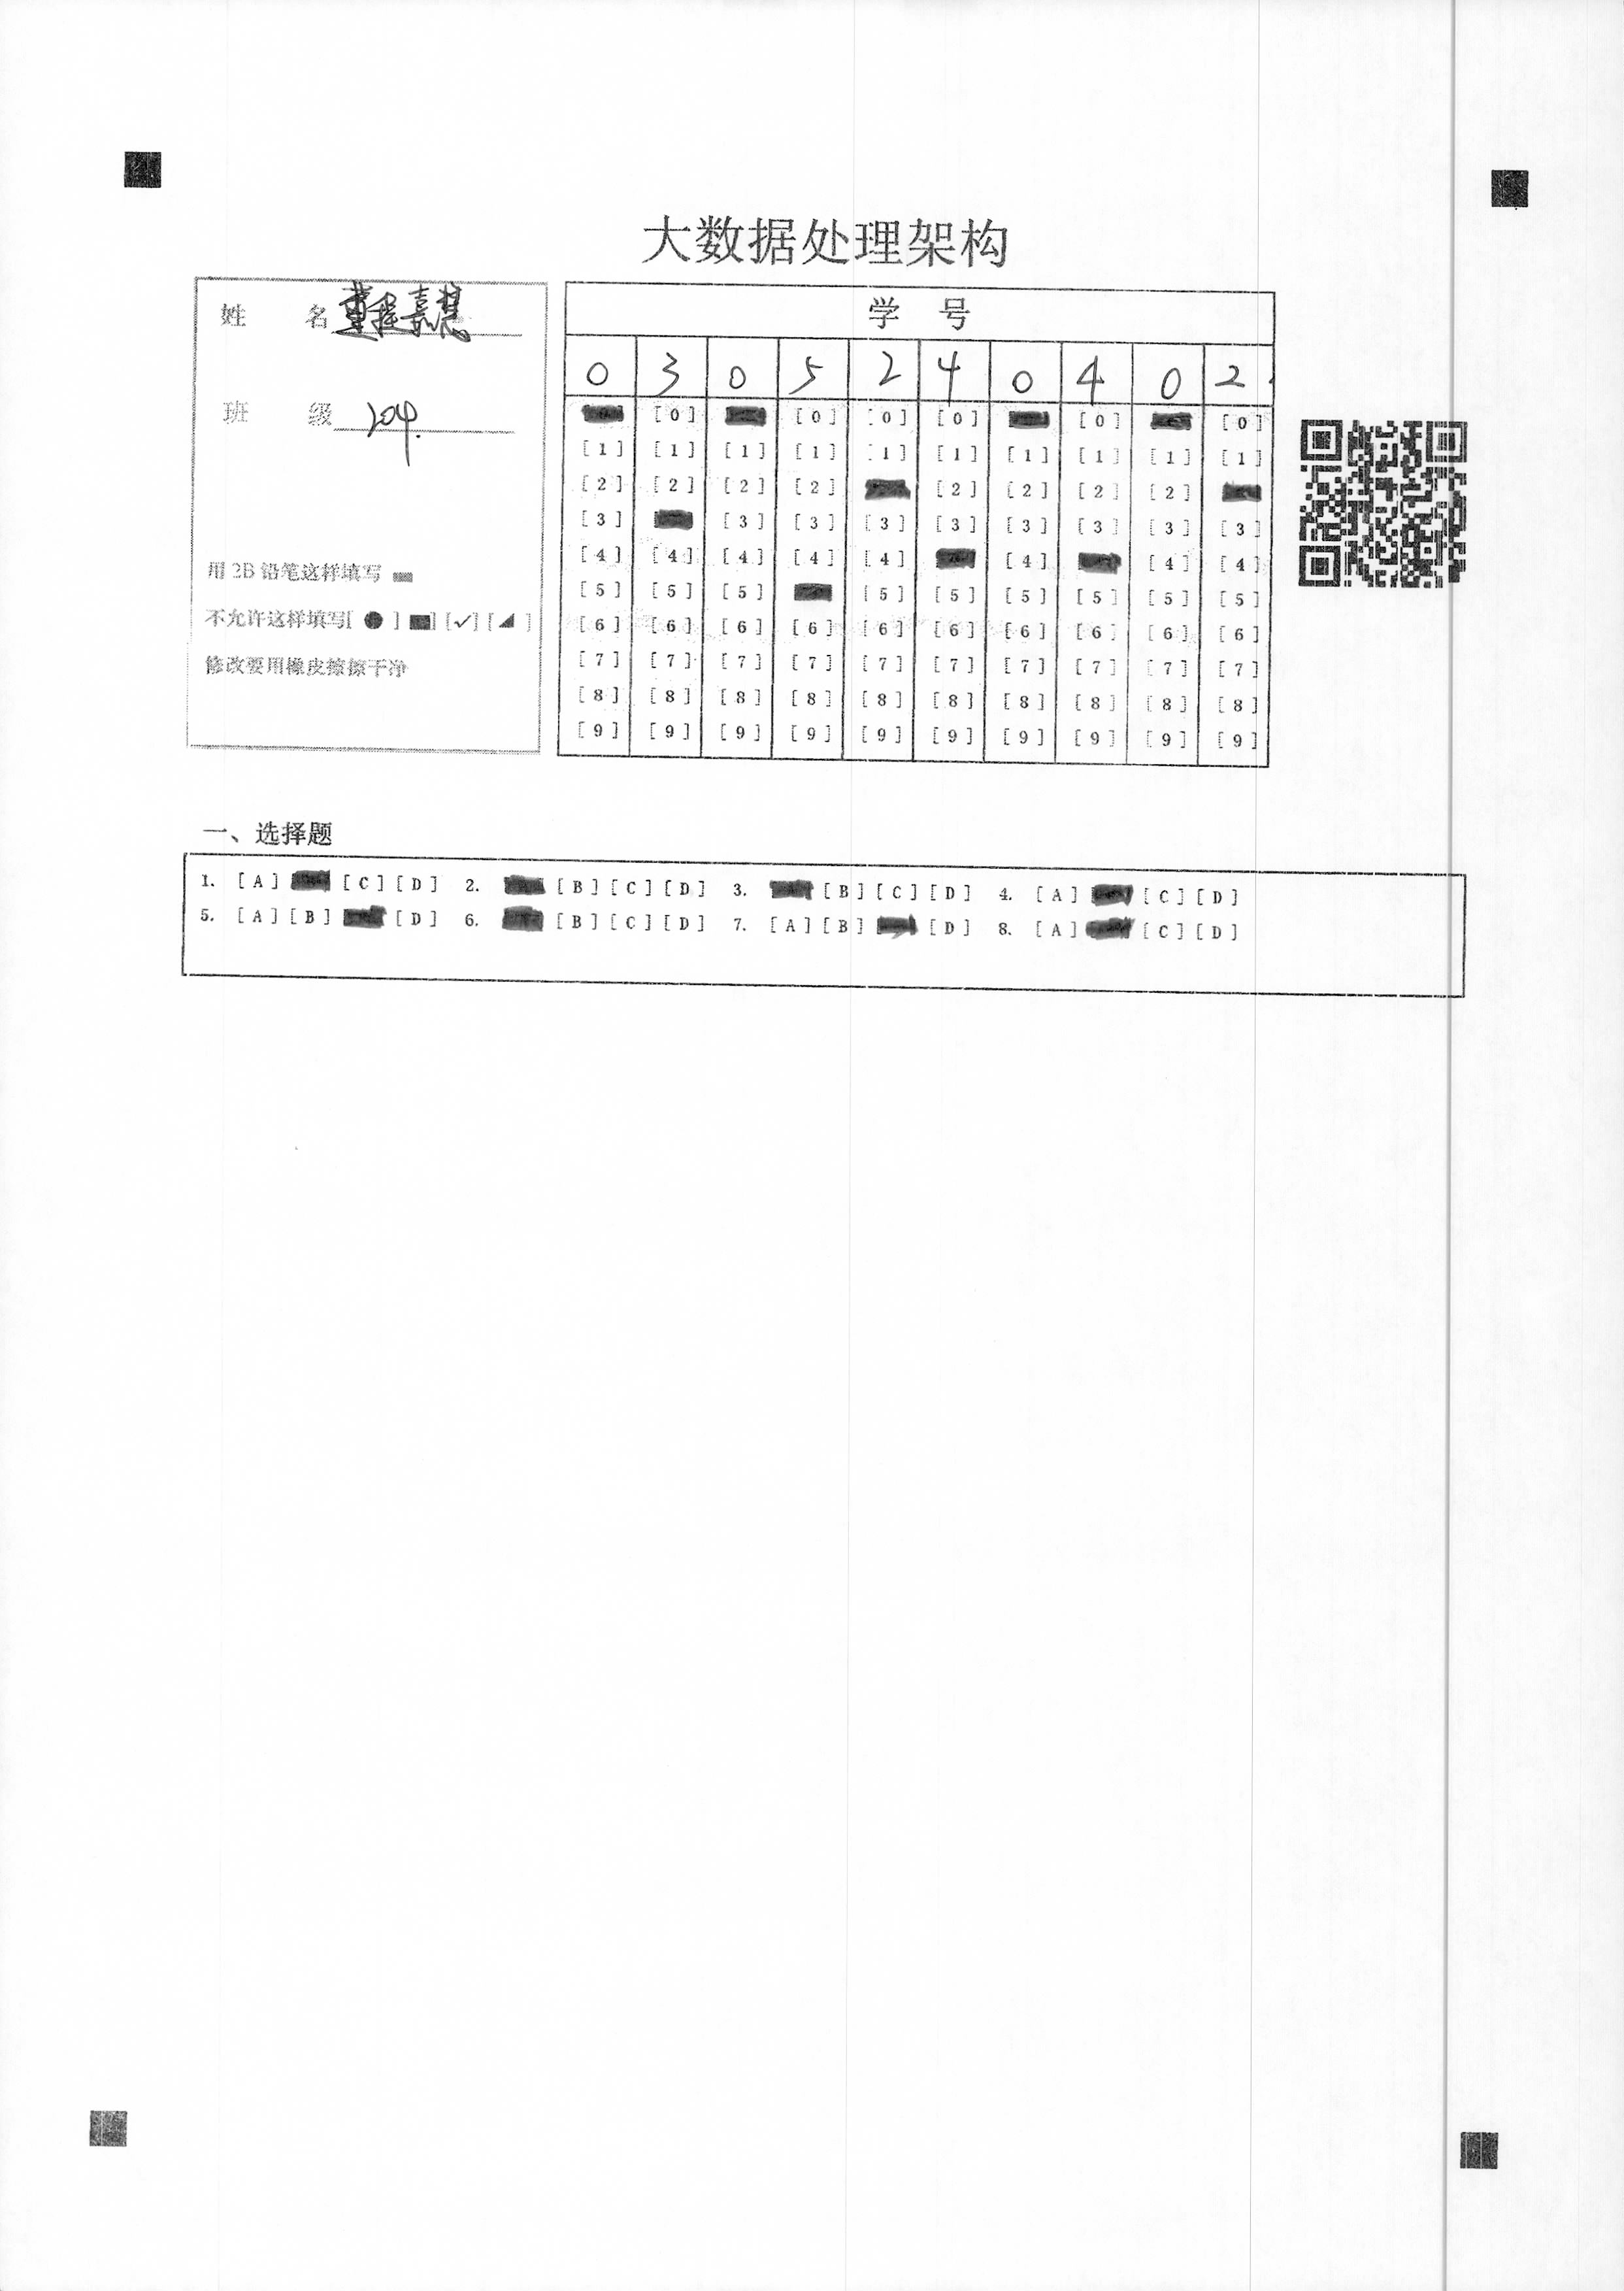 大数据处理架构
姓 名
班 级 204.
用 2B 铅笔这样填写
不允许这样填写[ ● ] ■] [✓] [◢ ]
修改要用橡皮擦擦干净
学 号
0 3 0 5 2 4 0 4 0 2
[0] [0] [0] [0] [0] [0]
[1] [1] [1] [1] [1] [1] [1] [1] [1] [1]
[2] [2] [2] [2] [2] [2] [2] [2]
[3] [3] [3] [3] [3] [3] [3] [3] [3]
[4] [4] [4] [4] [4] [4] [4] [4]
[5] [5] [5] [5] [5] [5] [5] [5] [5]
[6] [6] [6] [6] [6] [6] [6] [6] [6] [6]
[7] [7] [7] [7] [7] [7] [7] [7] [7] [7]
[8] [8] [8] [8] [8] [8] [8] [8] [8] [8]
[9] [9] [9] [9] [9] [9] [9] [9] [9] [9]
一、选择题
1. [A] [C] [D] 2. [B] [C] [D] 3. [B] [C] [D] 4. [A] [C] [D]
5. [A] [B] [D] 6. [B] [C] [D] 7. [A] [B] [D] 8. [A] [C] [D]